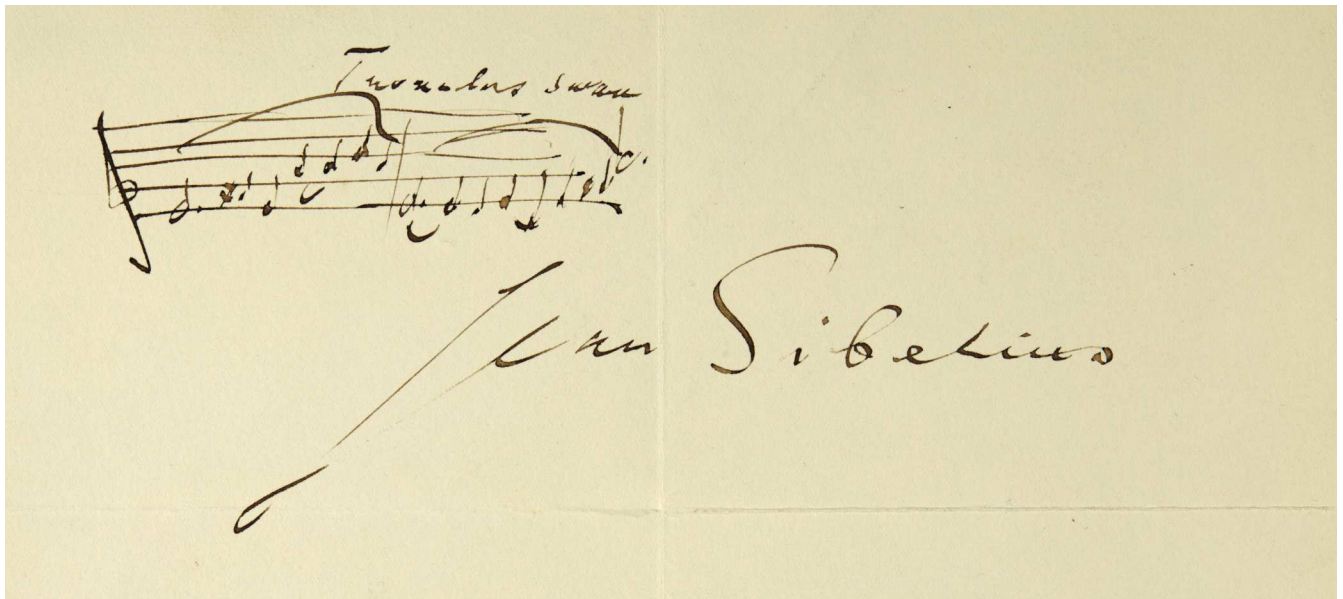 Tuonelas svan
Jean Sibelius